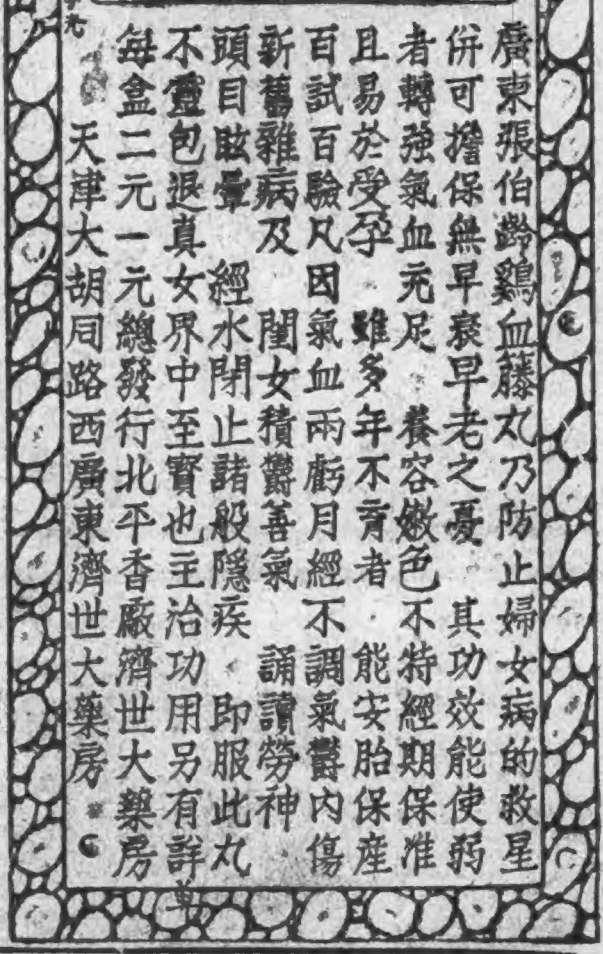 廣東張伯齡鷄血籐丸乃防止婦女病的救星
併可擔保無早衰早老之憂　其功效能使弱
者轉強氣血充足　養容嫩色不特經期保准
且易於受孕　雖多年不育者　能安胎保産
百試百驗凡因氣血兩虧月經不調氣鬱內傷
新舊雜病及　閨女積鬱善氣　誦讀勞神
頭目眩暈　經水閉止諸般隱疾　即服此丸
不靈包退真女界中至寳也主治功用另有詳單
每盒二元一元總發行北平香厰濟世大藥房
天津大胡同路西廣東濟世大藥房